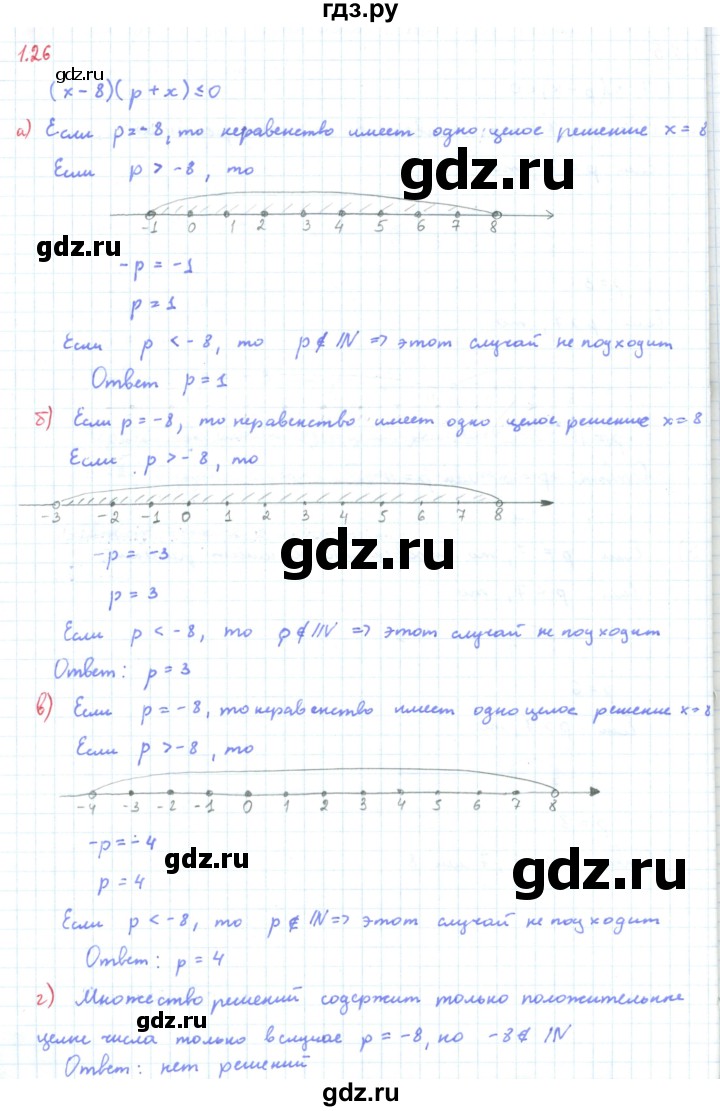 гдз.ру
1.26
gdz.ru
(x-8)(p+x)≤0
а) Если p=-8, то неравенство имеет одно целое решение x=8
Если p > -8, то
gdz.ru
-1 0 1 2 3 4 5 6 7 8
gdz.ru
-p = -1
p = 1
Если p < -8, то p∉ℕ => этот случай не подходит
Ответ p = 1
б) Если p = -8, то неравенство имеет одно целое решение x = 8
Если p > -8, то
-3 -2 -1 0 1 2 3 4 5 6 7 8
gdz.ru
-p = -3
p = 3
Если p < -8, то p∉ℕ => этот случай не подходит
Ответ: p = 3
в) Если p = -8, то неравенство имеет одно целое решение x=8
Если p > -8, то
-4 -3 -2 -1 0 1 2 3 4 5 6 7 8
-p = -4
gdz.ru
gdz.ru
p = 4
Если p < -8, то p∉ℕ => этот случай не подходит
Ответ: p = 4
г) Множество решений содержит только положительные
gdz.ru
целые числа только в случае p = -8, но -8∉ℕ
Ответ: нет решений
gdz.ru